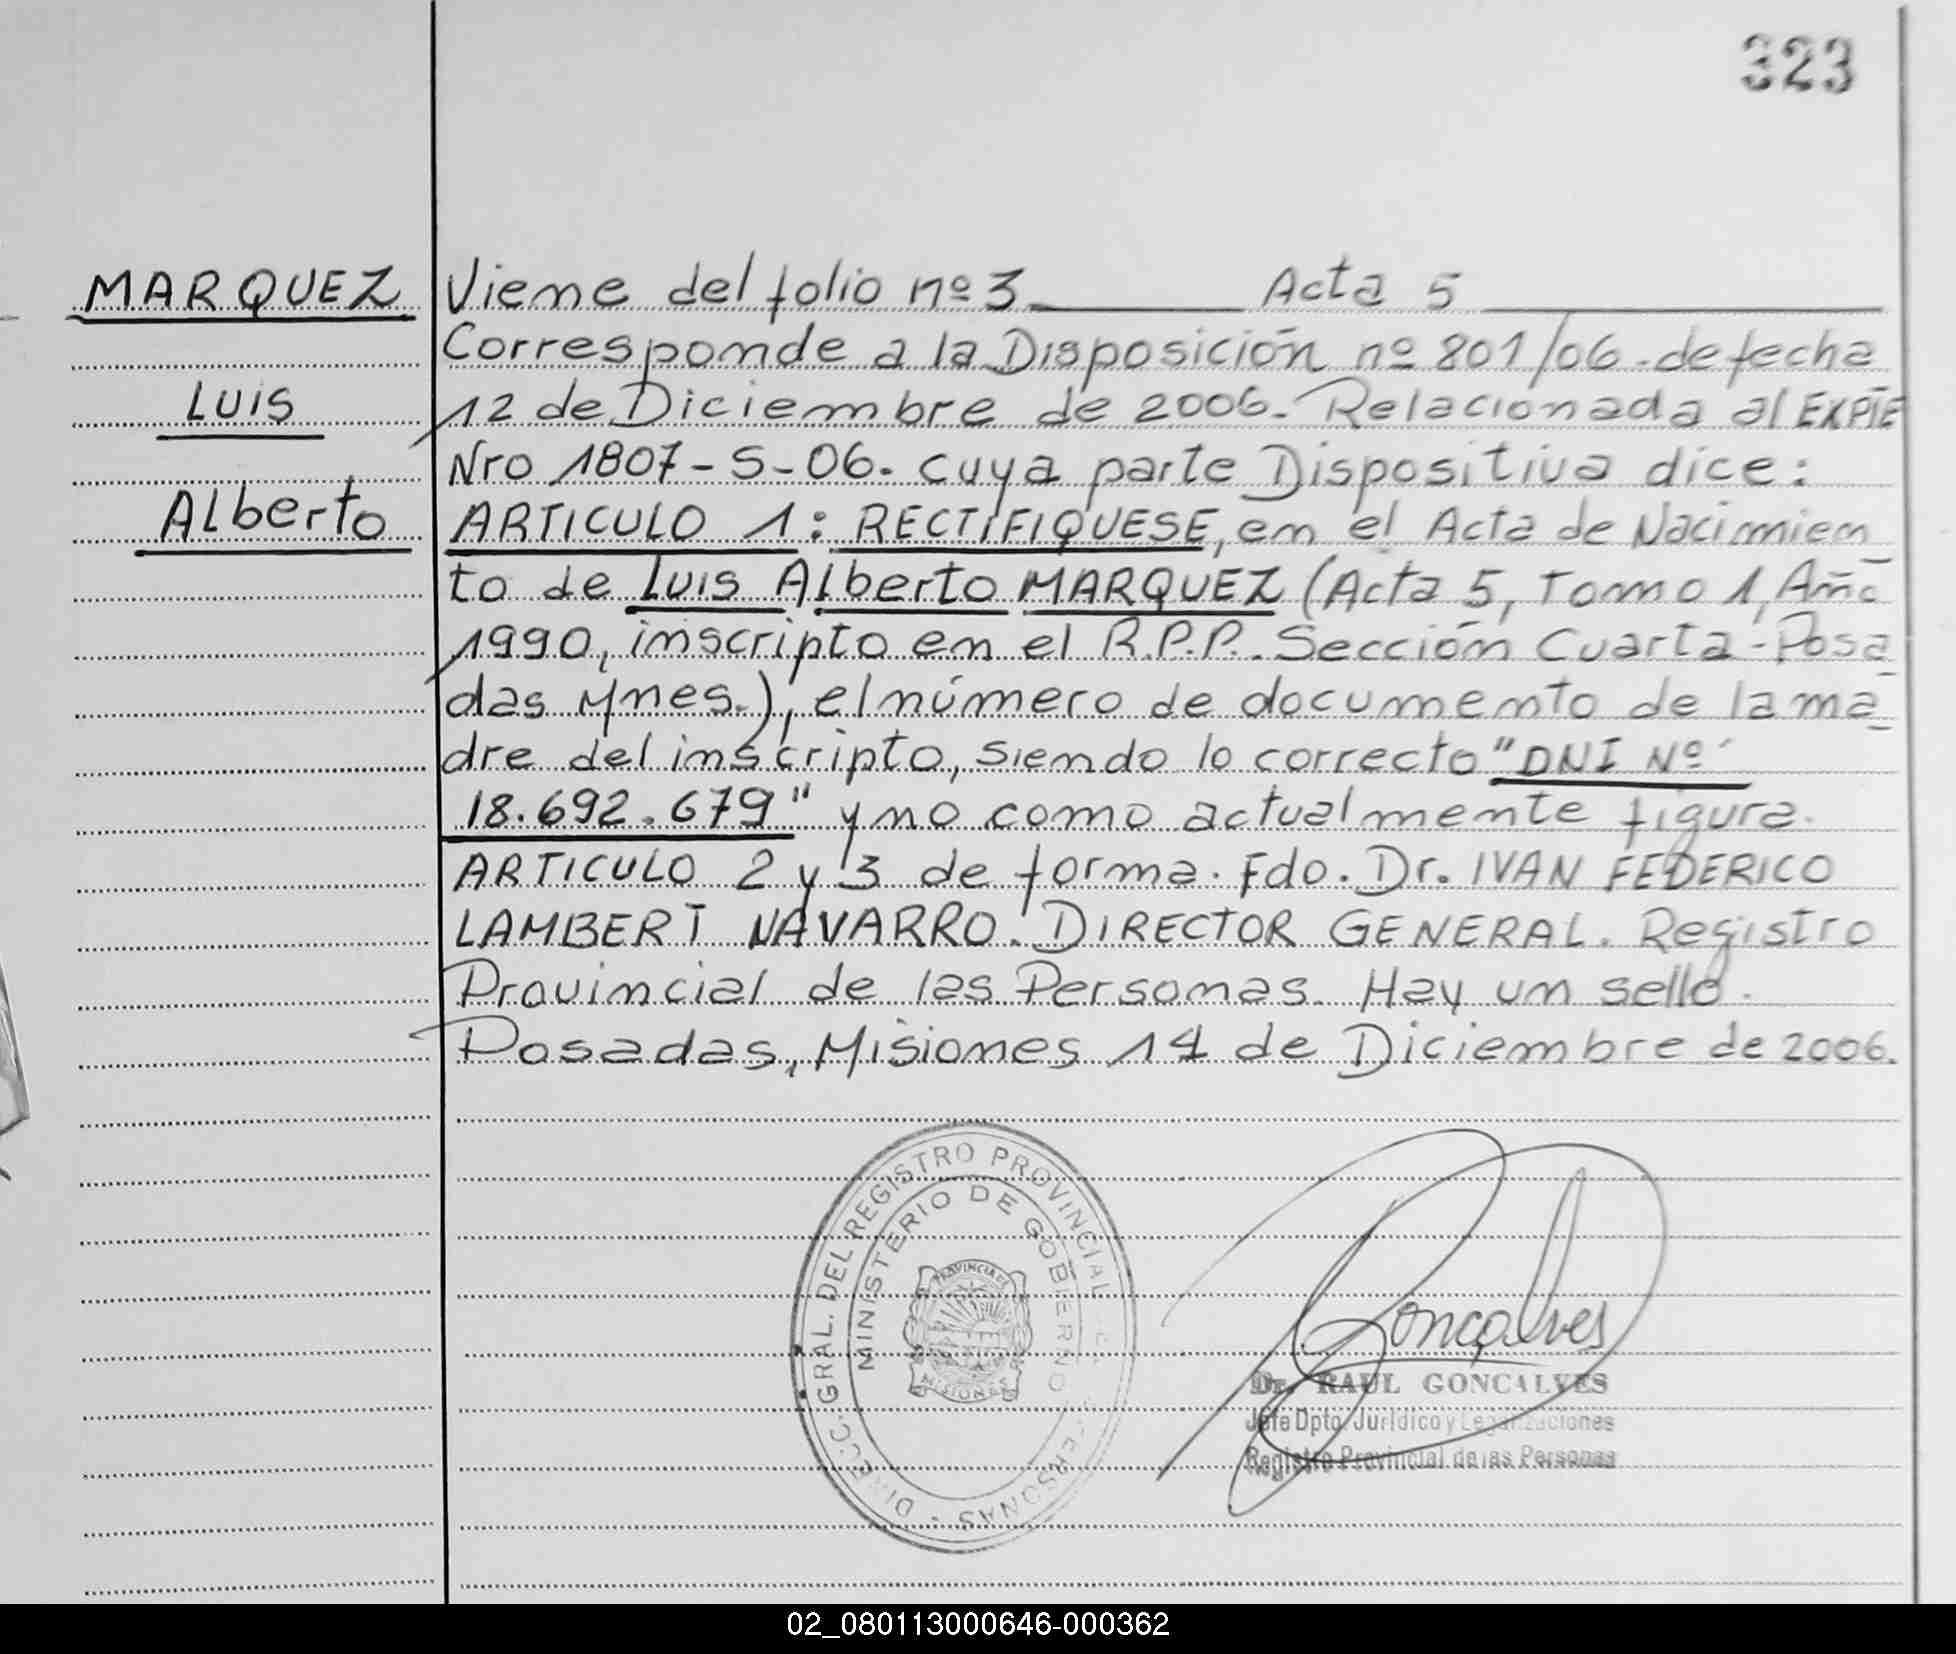 323
MARQUEZ
Luis
Alberto
Viene del folio nº 3 Acta 5
Corresponde a la Disposición nº 801/06. de fecha
12 de Diciembre de 2006. Relacionada al EXPTE
Nro 1807-S-06. cuya parte Dispositiva dice:
ARTICULO 1: RECTIFIQUESE, en el Acta de Nacimien
to de Luis Alberto MARQUEZ (Acta 5, Tomo 1, Año
1990, inscripto en el R.P.P. Sección Cuarta-Posa
das Mnes.), el número de documento de la ma
dre del inscripto, siendo lo correcto "DNI Nº
18.692.679" y no como actualmente figura.
ARTICULO 2 y 3 de forma. Fdo. Dr. IVAN FEDERICO
LAMBERT NAVARRO. DIRECTOR GENERAL. Registro
Provincial de las Personas. Hay un sello.
Posadas, Misiones 14 de Diciembre de 2006.
DIRECC. GRAL. DEL REGISTRO PROVINCIAL PERSONAS
MINISTERIO DE GOBIERNO
PROVINCIA DE
MISIONES
Goncalves
Dr. RAUL GONCALVES
Jefe Dpto. Jurídico y Legalizaciones
Registro Provincial de las Personas
02_080113000646-000362